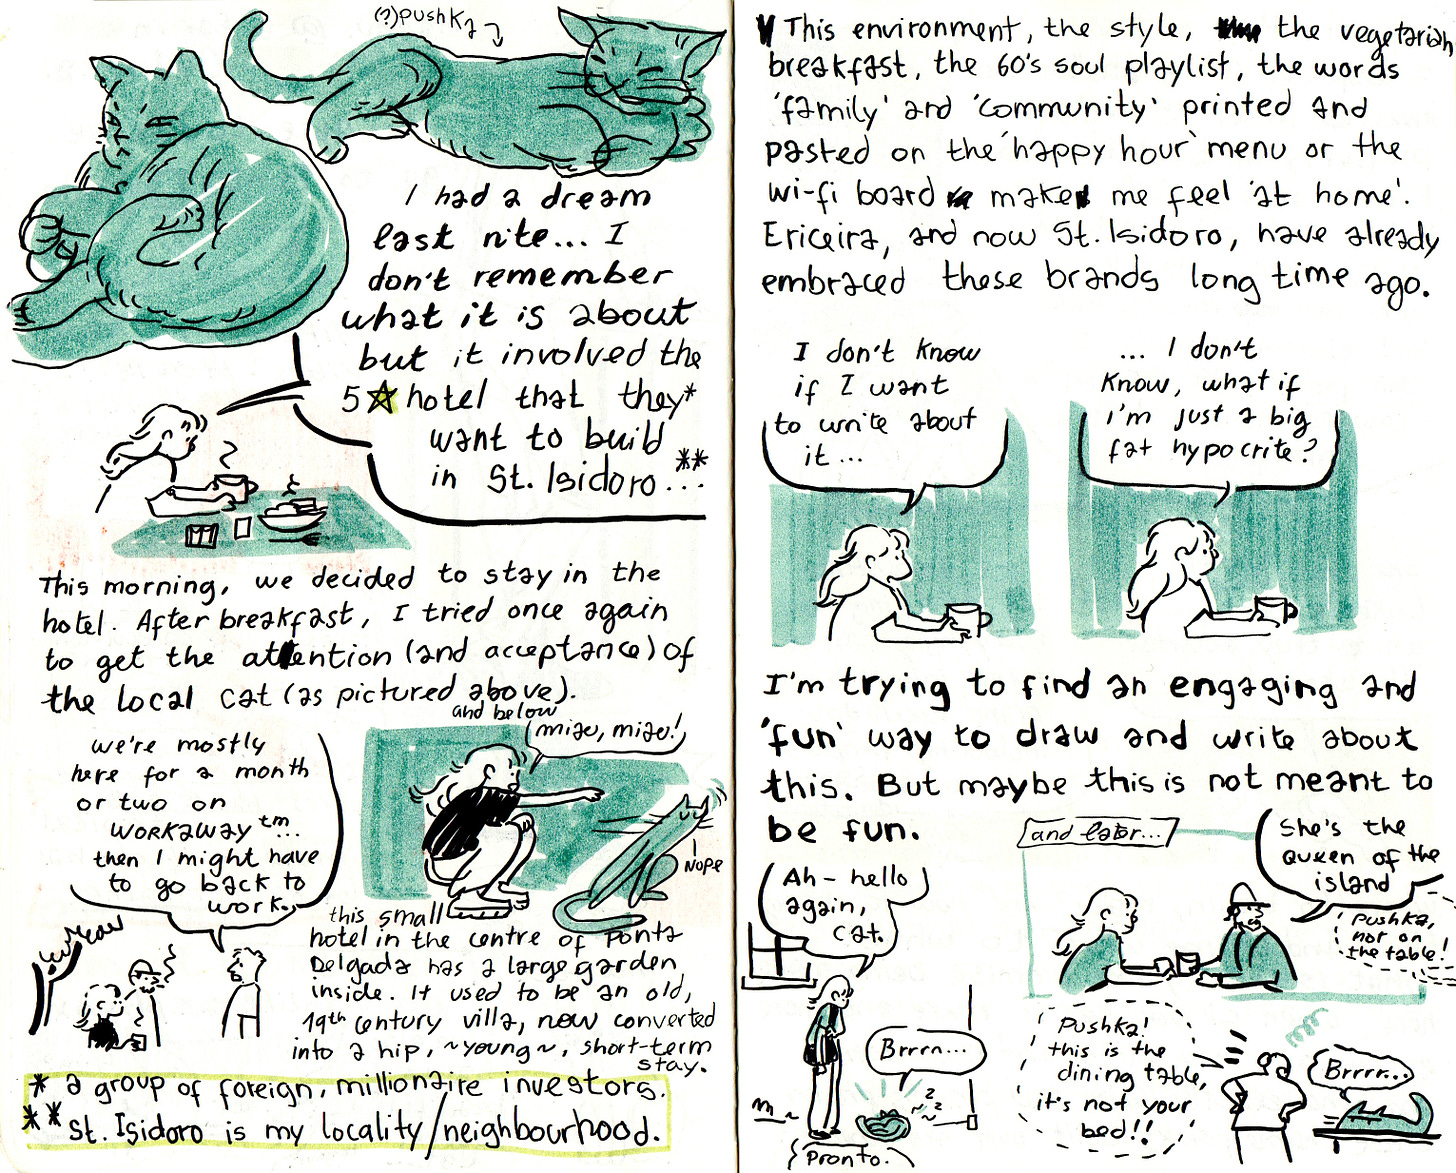 (?)pushka
I had a dream
last nite... I
don't remember
what it is about
but it involved the
5☆ hotel that they*
want to build
in St. Isidoro**...
This morning, we decided to stay in the
hotel. After breakfast, I tried once again
to get the attention (and acceptance) of
the local cat (as pictured above).
and below
miao, miao!
Nope
we're mostly
here for a month
or two on
workaway™...
then I might have
to go back to
work.
this small
hotel in the centre of Ponta
Delgada has a large garden
inside. It used to be an old,
19th century villa, now converted
into a hip, ~young~, short-term
stay.
* a group of foreign, millionaire investors.
** St. Isidoro is my locality/neighbourhood.
This environment, the style, the vegetarian
breakfast, the 60's soul playlist, the words
'family' and 'community' printed and
pasted on the 'happy hour' menu or the
wi-fi board make me feel 'at home'.
Ericeira, and now St. Isidoro, have already
embraced these brands long time ago.
I don't know
if I want
to write about
it...
... I don't
know, what if
I'm just a big
fat hypocrite?
I'm trying to find an engaging and
'fun' way to draw and write about
this. But maybe this is not meant to
be fun.
Ah - hello
again,
cat.
Brrrn...
z z z
Pronto.
and later...
She's the
queen of the
island
Pushka,
not on
the table!
Pushka!
this is the
dining table,
it's not your
bed!!
Brrrr...